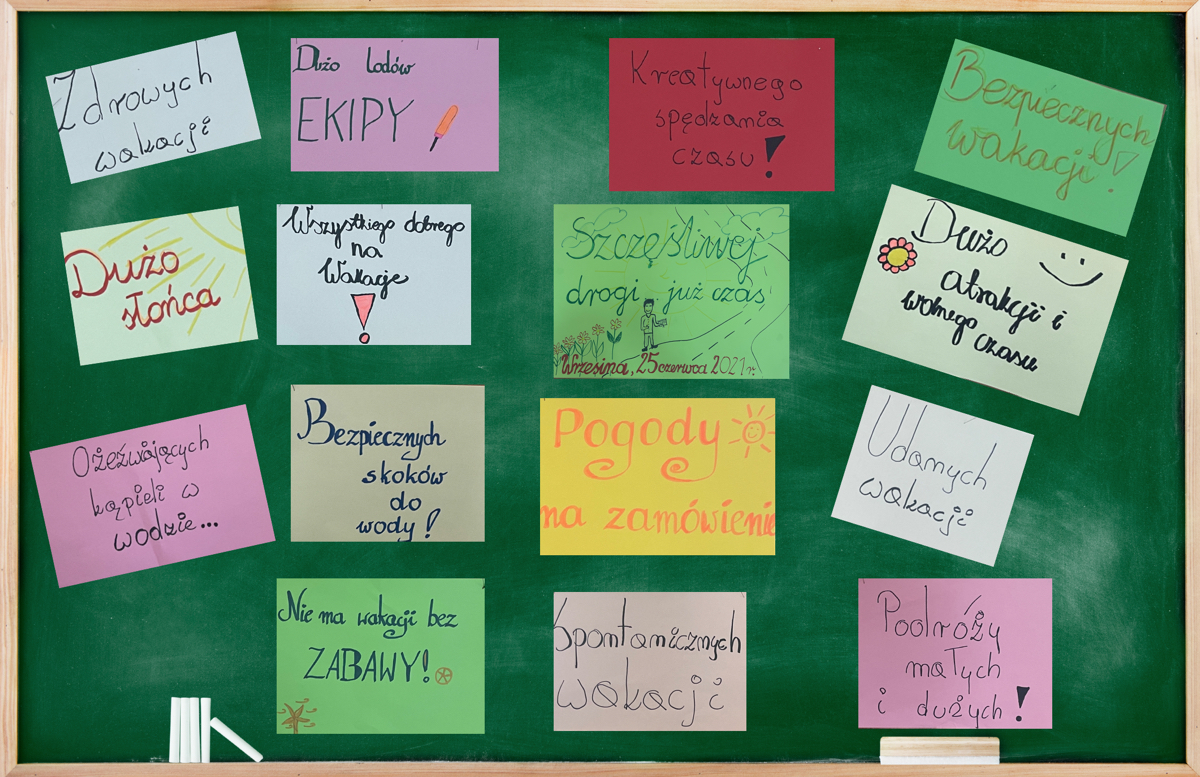 Zdrowych
wakacji
Dużo lodów
EKIPY
Kreatywnego
spędzania
czasu!
Bezpiecznych
wakacji!
Dużo
słońca
Wszystkiego dobrego
na
Wakacje
!
Szczęśliwej
drogi już czas
Września, 25 czerwca 2021 r.
Dużo
atrakcji i
wolnego czasu
Orzeźwiających
kąpieli w
wodzie...
Bezpiecznych
skoków
do
wody!
Pogody
na zamówienie
Udanych
wakacji
Nie ma wakacji bez
ZABAWY!
Spontanicznych
wakacji
Podróży
małych
i dużych!